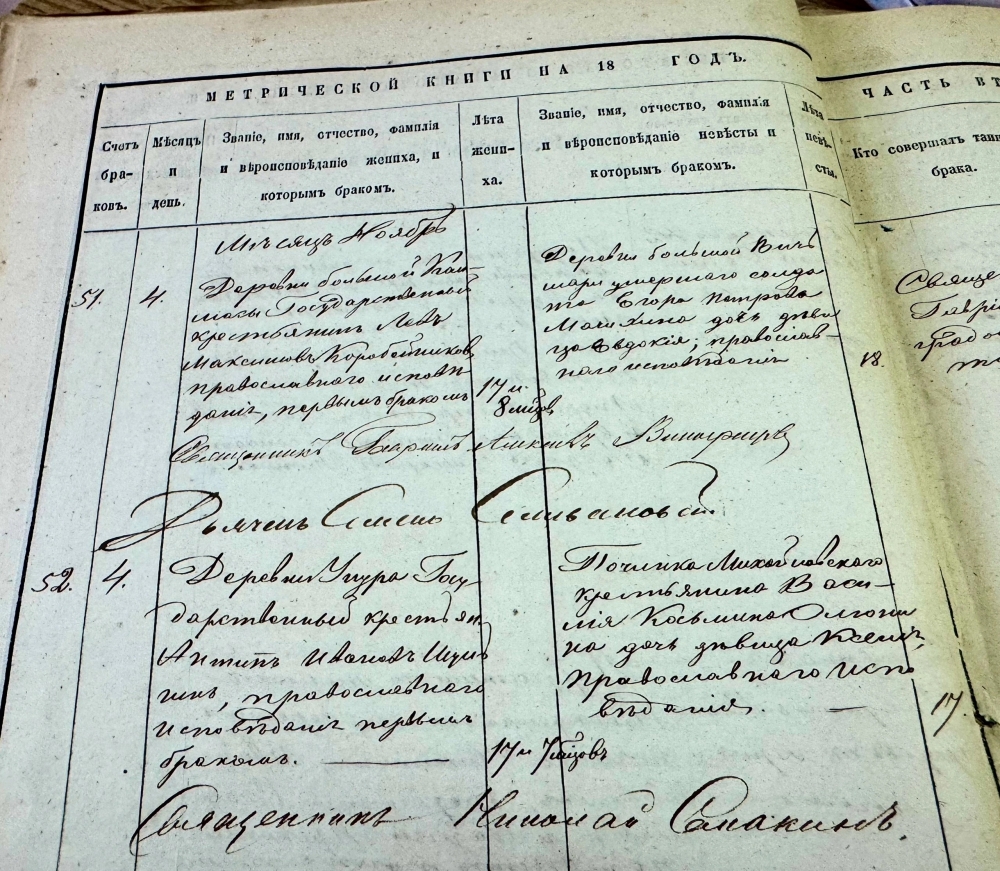 МЕТРИЧЕСКОЙ КНИГИ НА 18 ГОДЪ.
ЧАСТЬ ВТ
Счетъ
бра-
ковъ.
Мѣсяцъ
и
день.
Званіе, имя, отчество, фамилія
и вѣроисповѣданіе жениха, и
которымъ бракомъ.
Лѣта
жени-
ха.
Званіе, имя, отчество, фамилія
и вѣроисповѣданіе невѣсты и
которымъ бракомъ.
Лѣта
невѣ-
сты.
Кто совершалъ таин
брака.
Мѣсяцъ Ноябрь
51.
4.
Деревни большой Кок-
Государственный
крестьянинъ Левъ
Максимовъ Коробейниковъ,
православнаго исповѣ
данія, первымъ бракомъ
17 и
8 мцовъ
Деревни большой
умершаго солда
та Егора Петрова
дочь дѣви
ца Евдокія, православ-
наго исповѣданія
18.
Священ
Гаврі
Священникъ Гавріилъ
Дьячекъ Семенъ Селивановскій
52.
4.
Деревни Уцура Госу
дарственный крестьян
Антипъ Ивановъ
православнаго
исповѣданія первымъ
бракомъ.
17 и 7 мцовъ
Починка Михайловскаго
крестьянина Васи-
лія Косьмина
на дочь дѣвица Ксенія,
православнаго испо
вѣданія.
17.
Священникъ Николай